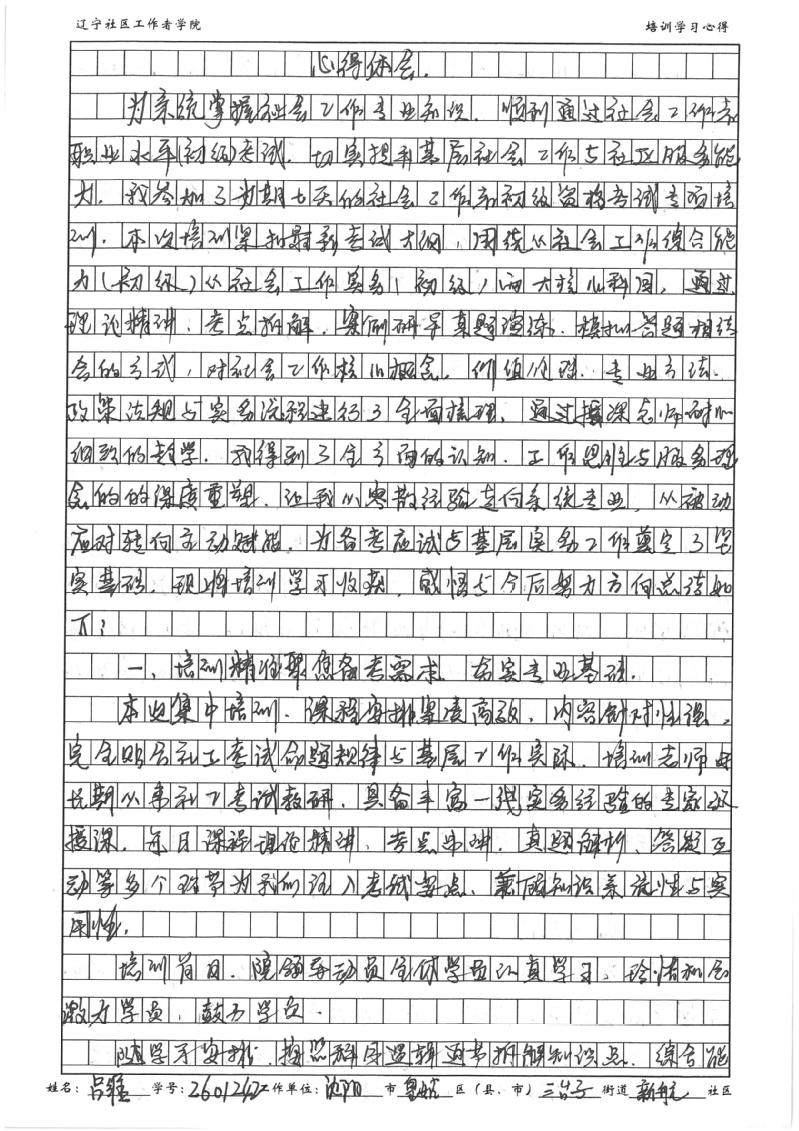 辽宁社区工作者学院 培训学习心得
心得体会.
为系统掌握社会工作专业知识.顺利通过社会工作者
职业水平(初级)考试.切实提升基层社会工作与社区服务能
力.我参加了为期七天的社会工作者初级资格考试专项培
训.本次培训紧扣最新考试大纲,围绕从社会工作综合能
力(初级)从社会工作实务(初级)两大核心科目,通过
理论精讲、考点拆解、案例研导真题演练、模拟答题相结
合的方式,对社会工作核心概念、价值伦理、专业方法.
政策法规与实务流程进行了全面梳理.通过授课老师耐心
细致的教学.我得到了全方面的认知.工作思维与服务理
念的的深度重塑.让我从零散经验走向系统专业,从被动
应对转向主动赋能,为备考应试与基层实务工作奠定了坚
实基础.现将培训学习收获,感悟与今后努力方向总结如
下:
一、培训精准聚焦备考需求 夯实专业基础.
本次集中培训.课程安排紧凑高效,内容针对性强,
完全贴合社工考试命题规律与基层工作实际.培训老师由
长期从事社工考试教研,具备丰富一线实务经验的专家级
授课.每日课程理论精讲、考点串讲、真题解析、答疑互
动等多个环节为我们 入考试要点、兼顾知识系统性与实
用性.
培训首日.院领导动员全体学员认真学习,珍惜机会
激力学员,鼓励学员.
随学习安排.按照科目逻辑逐节拆解知识点.综合能
姓名: 吕 学号: 2601242 工作单位: 沈阳 市 皇姑 区(县、市) 三台子 街道 新航 社区